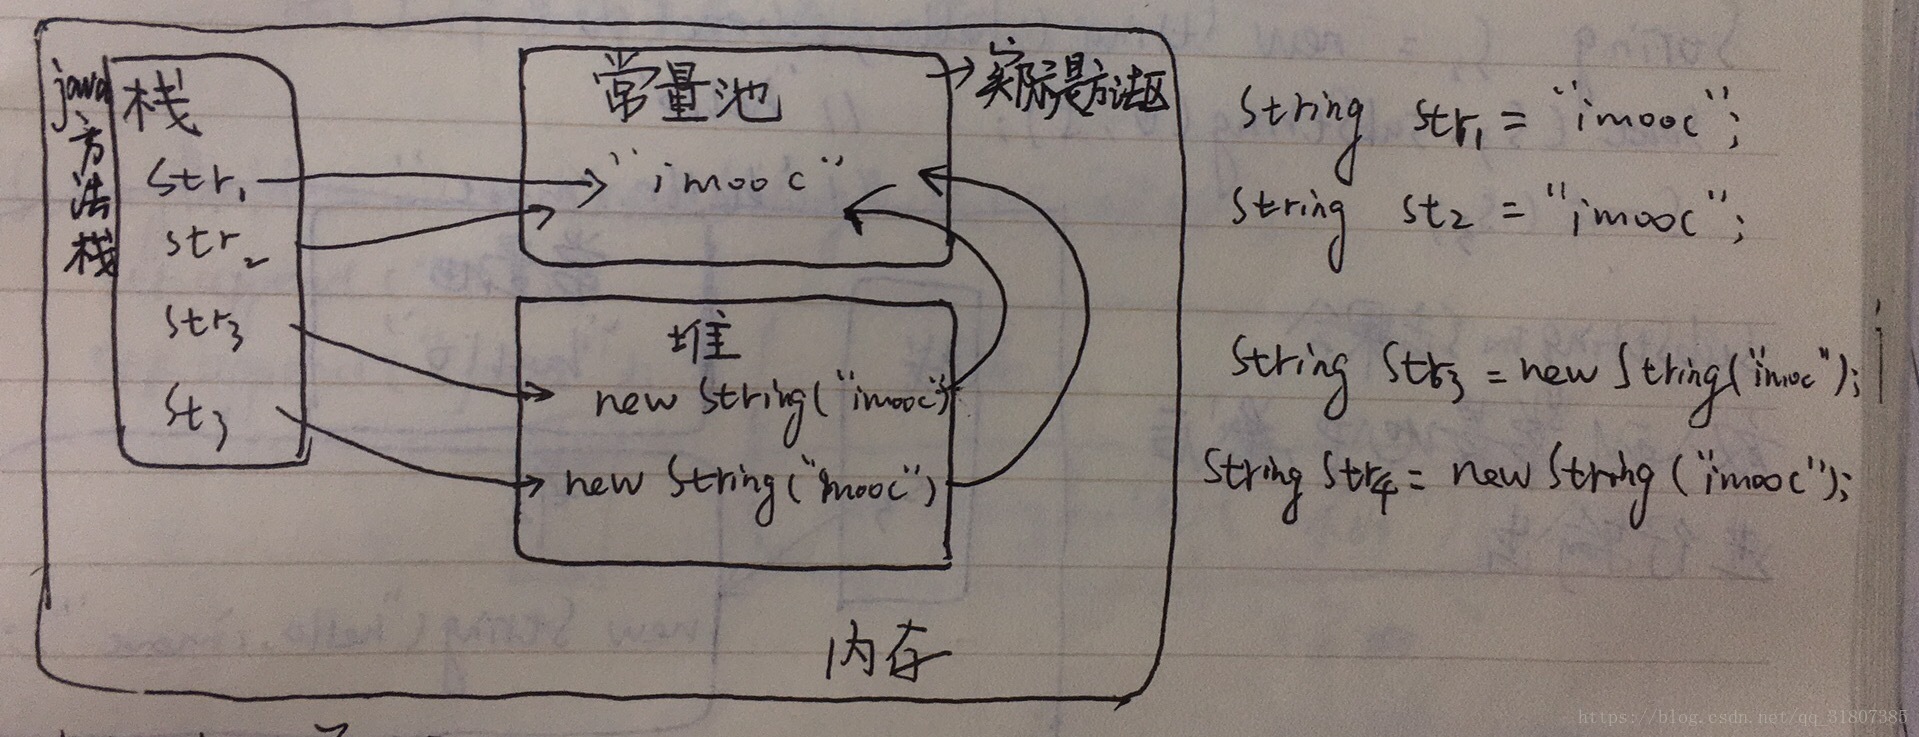 java方法栈
栈
str1
str2
str3
st3
常量池
"imooc"
实际是方法区
堆
new String("imooc")
new String("imooc")
内存
String str1 = "imooc";
String st2 = "imooc";
String str3 = new String("imooc");
String str4 = new String("imooc");
https://blog.csdn.net/qq_31807385